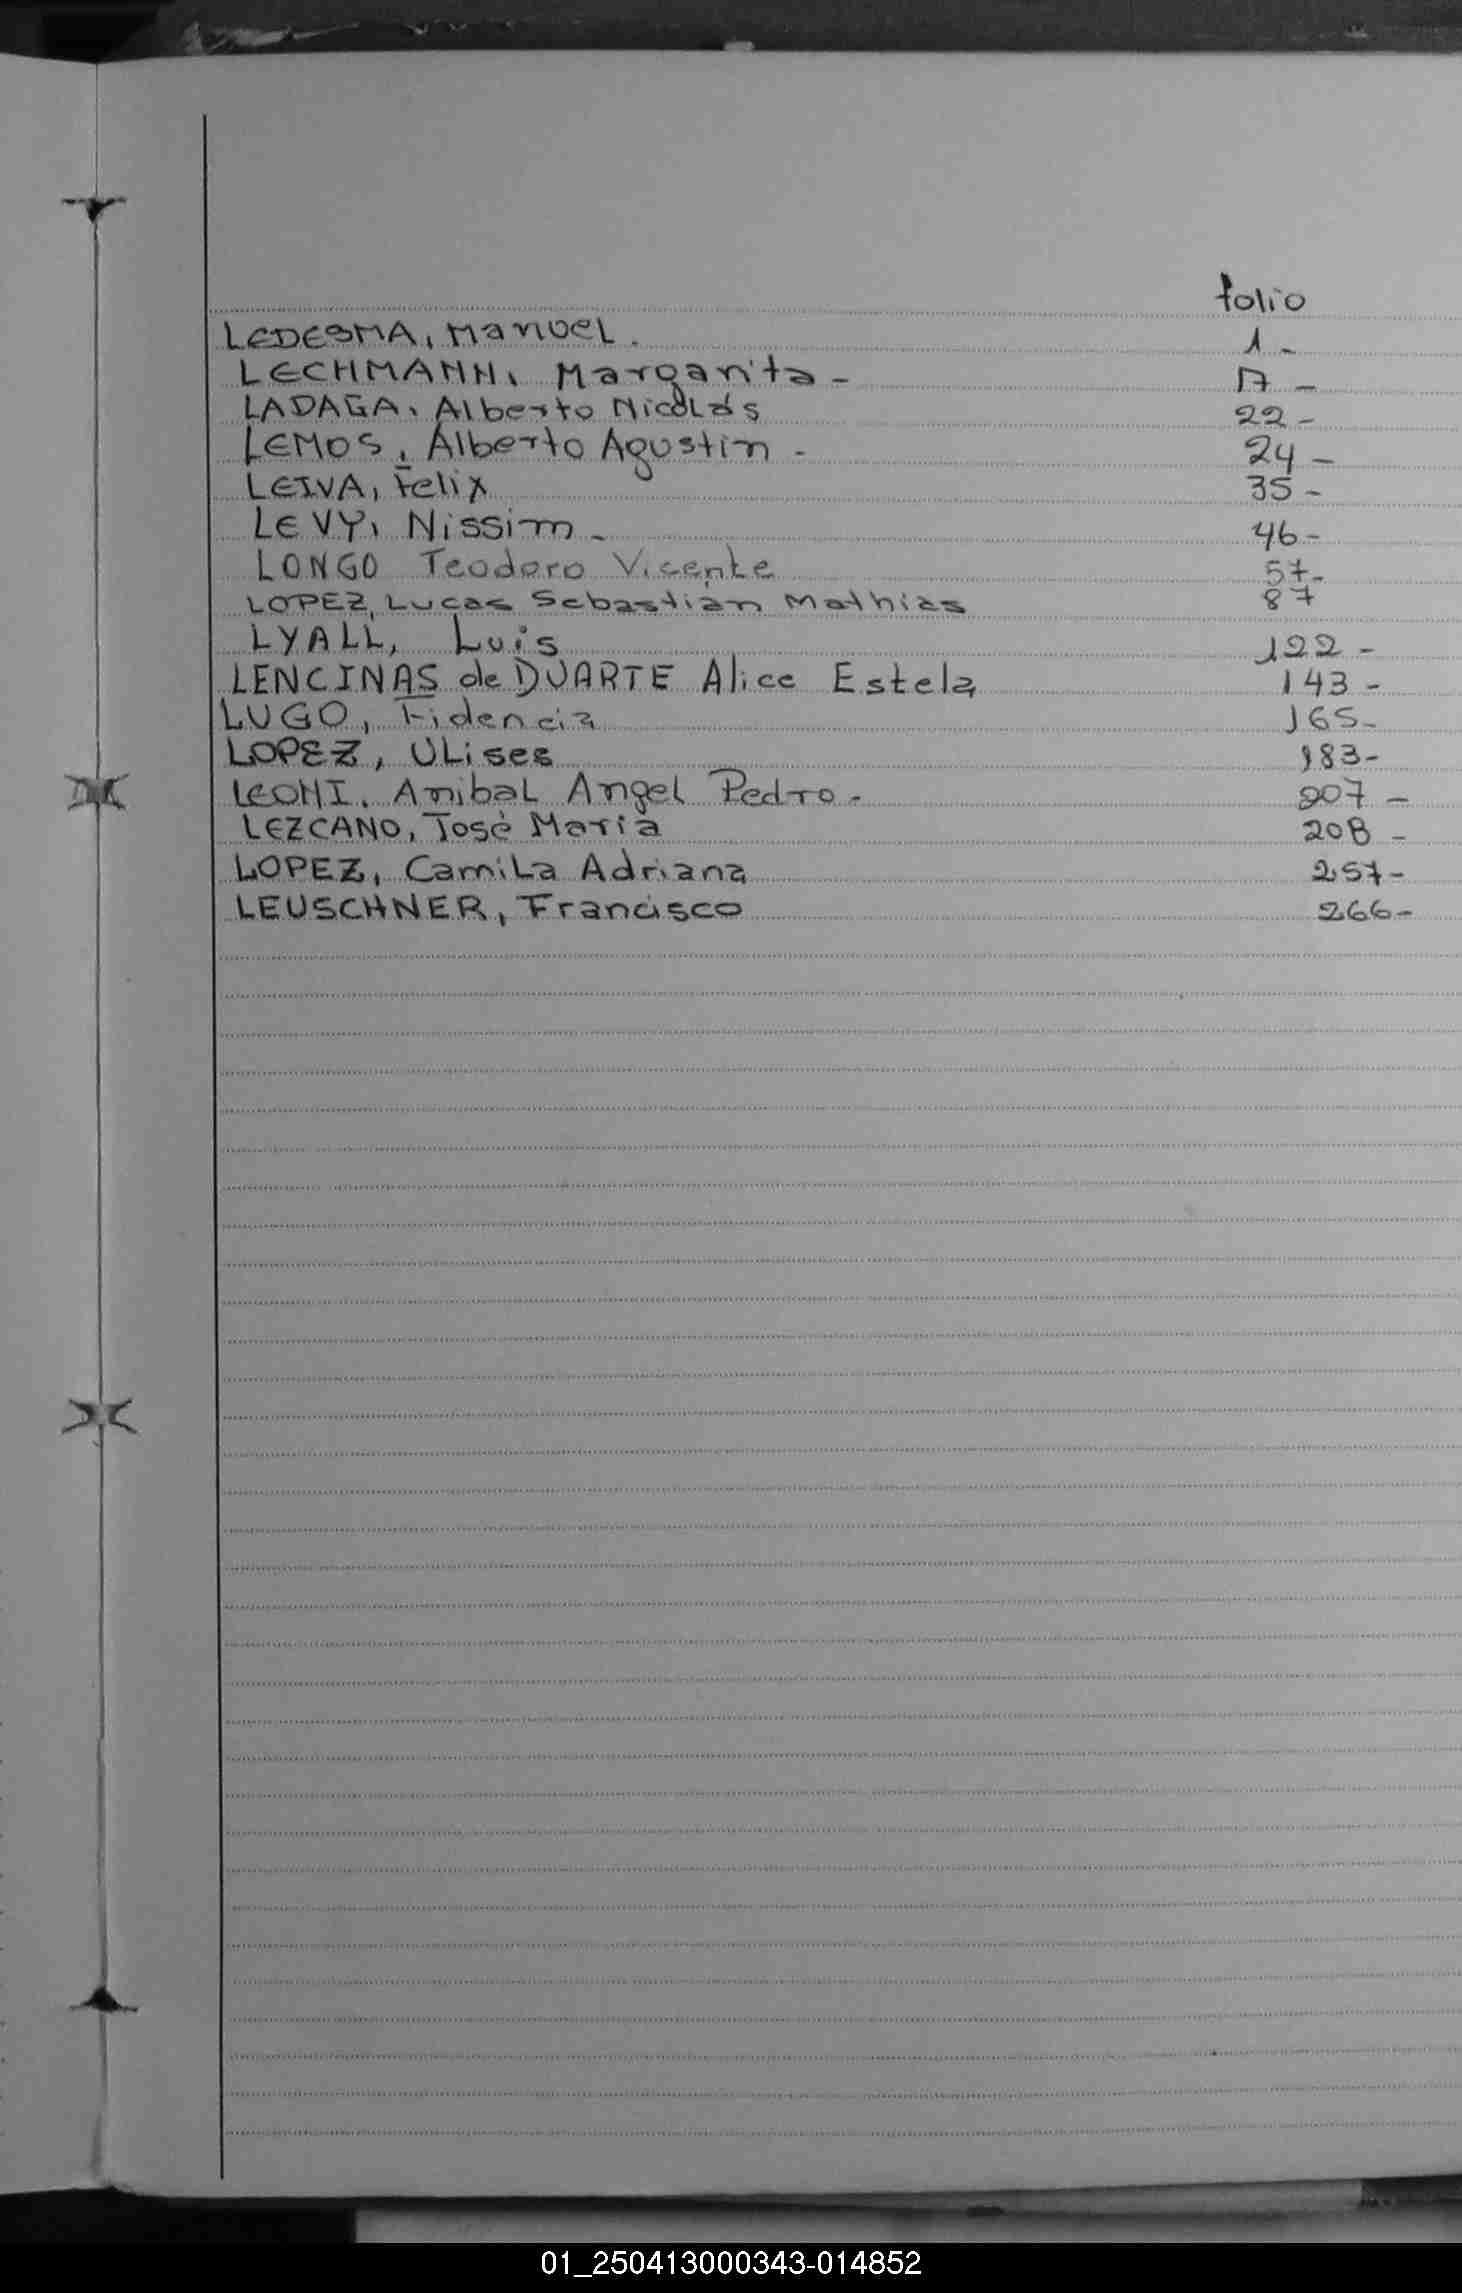 folio
LEDESMA, Manuel. 1-
LECHMANN, Margarita- 17-
LADAGA, Alberto Nicolás 22-
LEMOS, Alberto Agustin- 24-
LEIVA, Felix 35-
LEVY, Nissim- 46-
LONGO Teodoro Vicente 57-
LOPEZ, Lucas Sebastián Mathias 87
LYALL, Luis 122-
LENCINAS de DUARTE Alice Estela 143-
LUGO, Fidencia 165-
LOPEZ, ULises 183-
LEONI, Anibal Angel Pedro- 207-
LEZCANO, José María 208-
LOPEZ, Camila Adriana 257-
LEUSCHNER, Francisco 266-
01_250413000343-014852